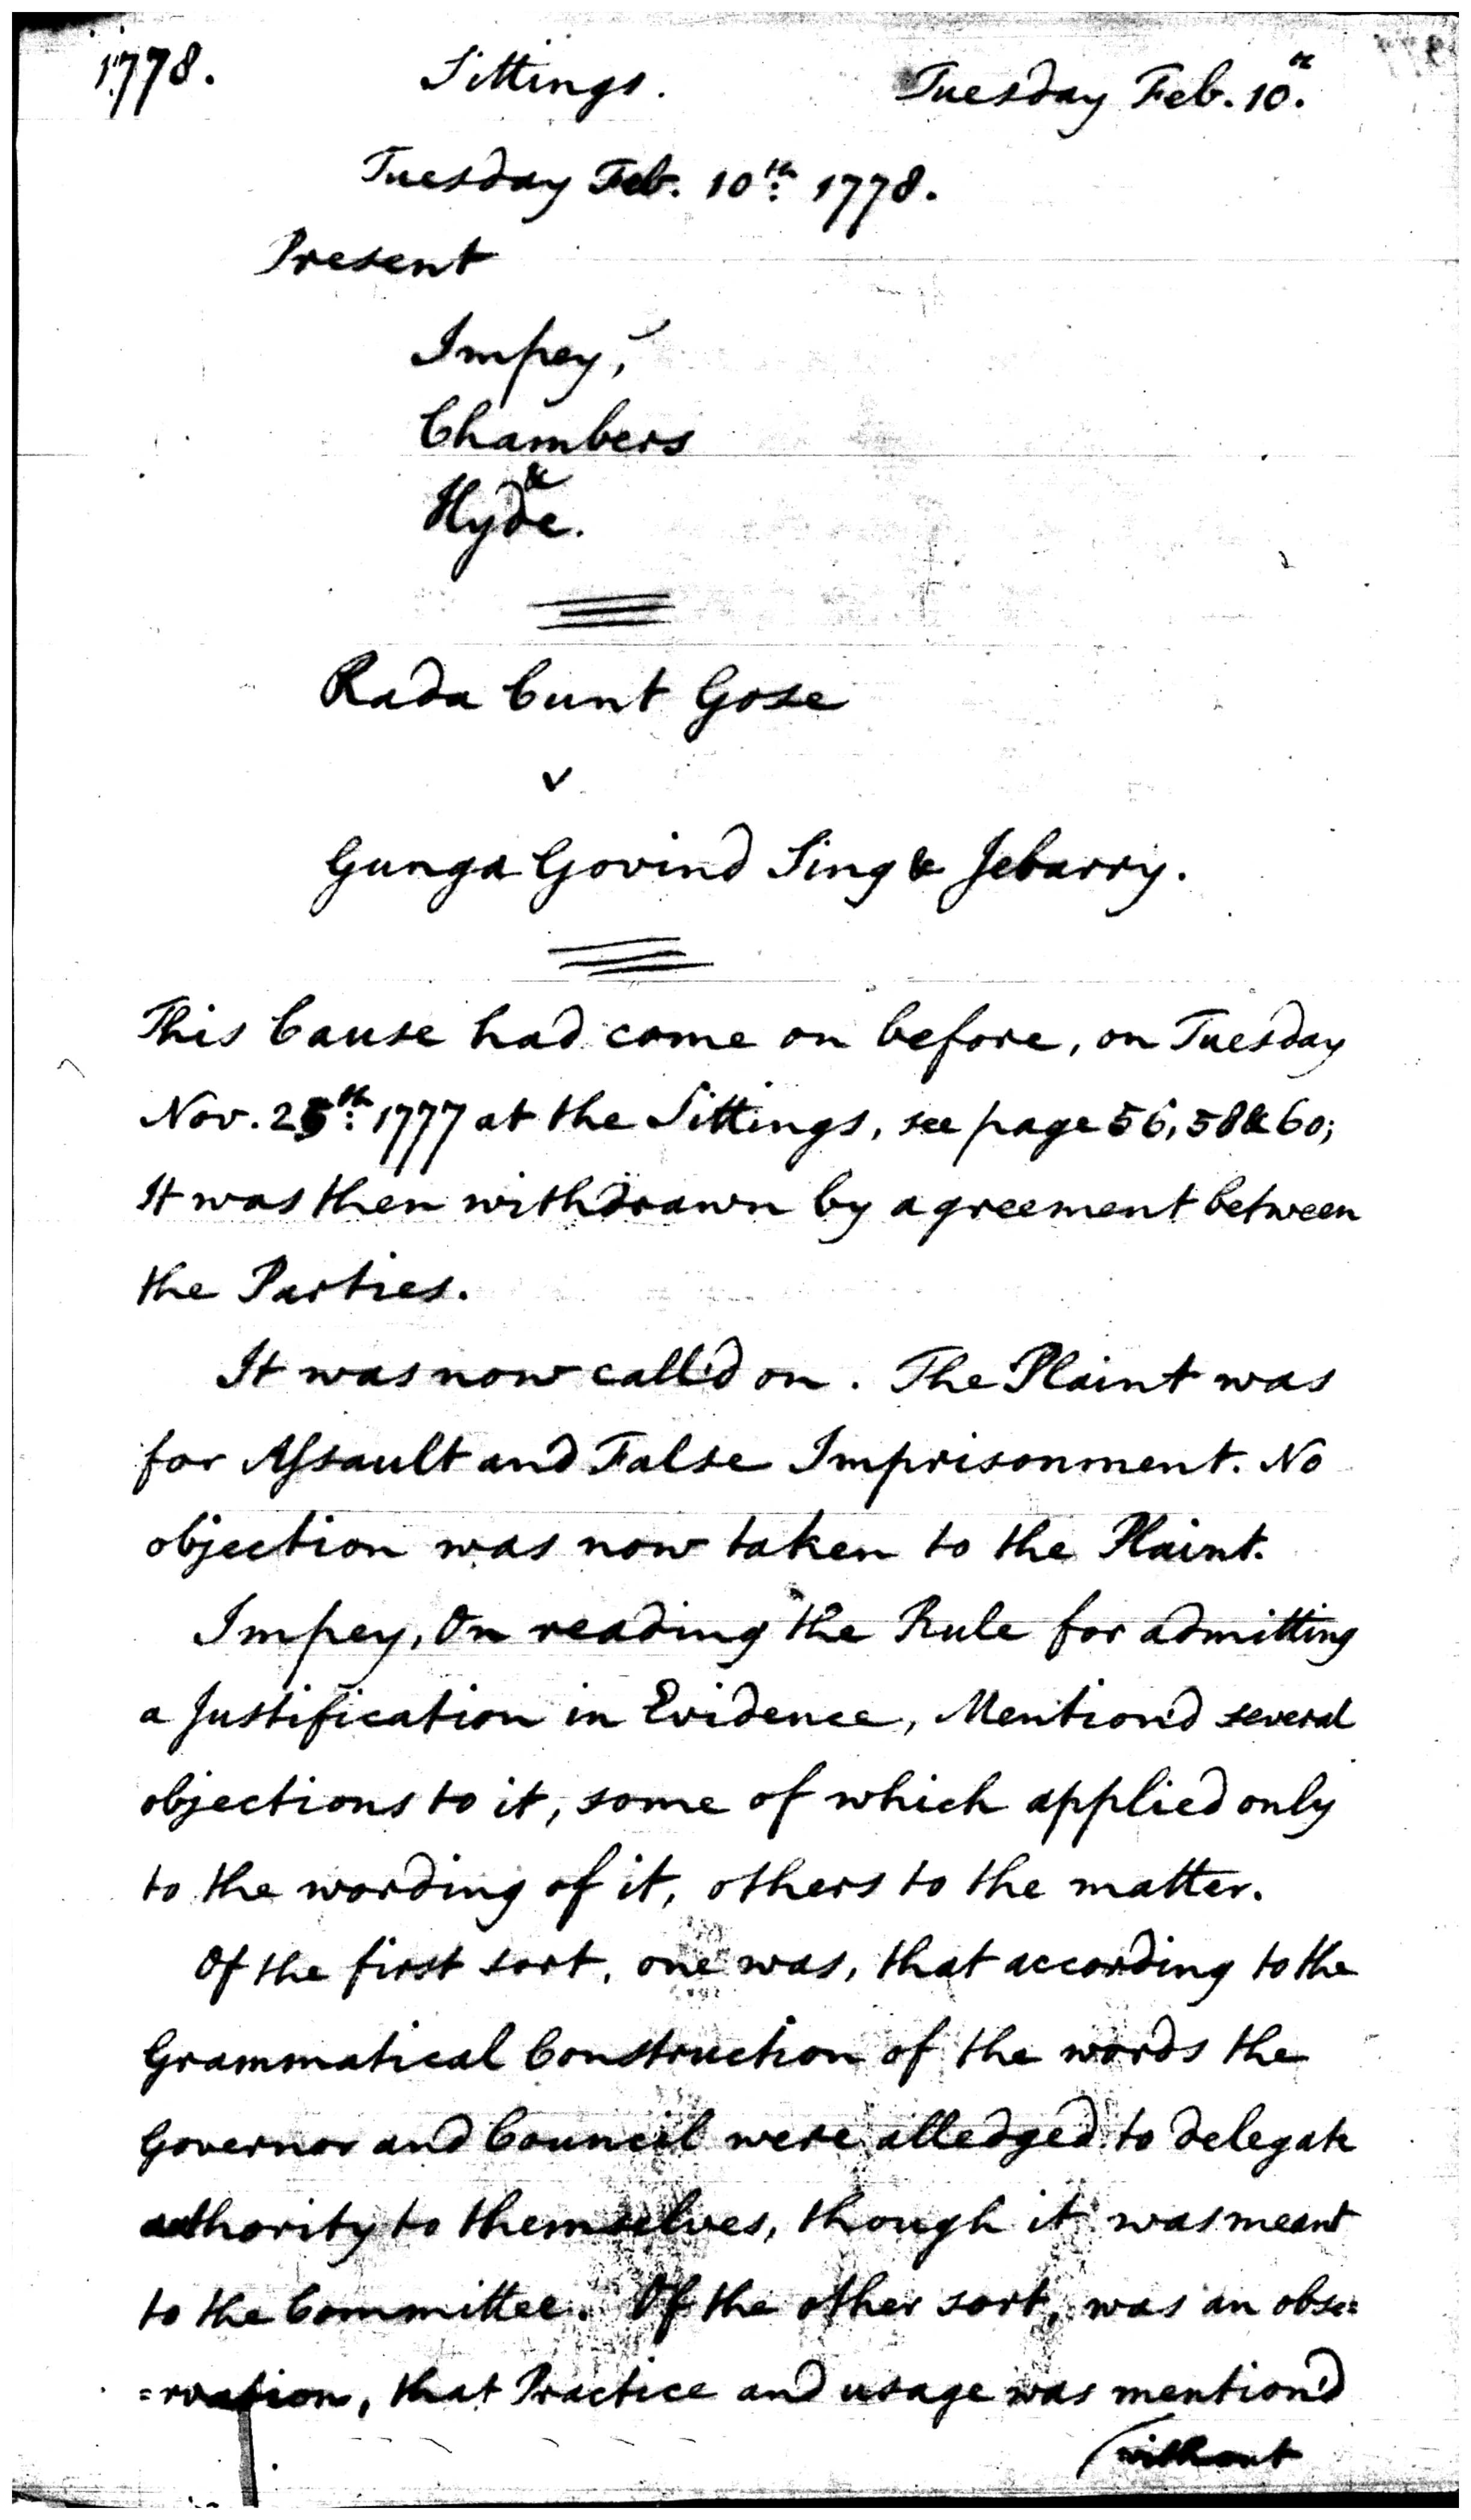 1778. Sittings. Tuesday Feb. 10th.
Tuesday Feb. 10th. 1778.
Present
Impey,
Chambers
&
Hyde.
Rada Cunt Gose
v
Gunga Govind Sing & Jebarry.
This Cause had come on before, on Tuesday
Nov. 25th. 1777 at the Sittings, see page 56, 58 & 60;
It was then withdrawn by agreement between
the Parties.
It was now call'd on. The Plaint was
for Assault and False Imprisonment. No
objection was now taken to the Plaint.
Impey, On reading the Rule for admitting
a Justification in Evidence, Mention'd several
objections to it, some of which applied only
to the wording of it, others to the matter.
Of the first sort, one was, that according to the
Grammatical Construction of the words the
Governor and Council were alledged to delegate
authority to themselves, though it was meant
to the Committee. Of the other sort, was an obse=
=rvation, that Practice and usage was mention'd
(without